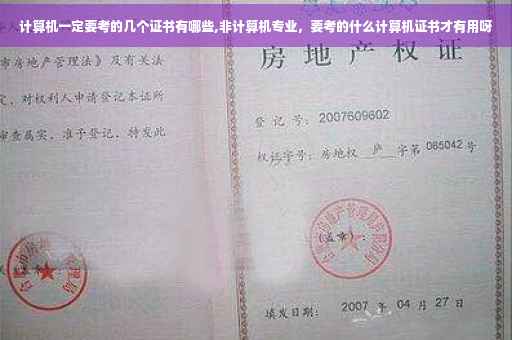 计算机一定要考的几个证书有哪些,非计算机专业，要考的什么计算机证书才有用呀
市房地产管理法》及有关法
定，对权利人申请登记本证所
审查属实，准予登记，特发此
房地产权证
登记号：2007609602
权证字号：房地权 庐 字第 085042 号
(盖章)：
填发日期： 2007 年 04 月 27 日